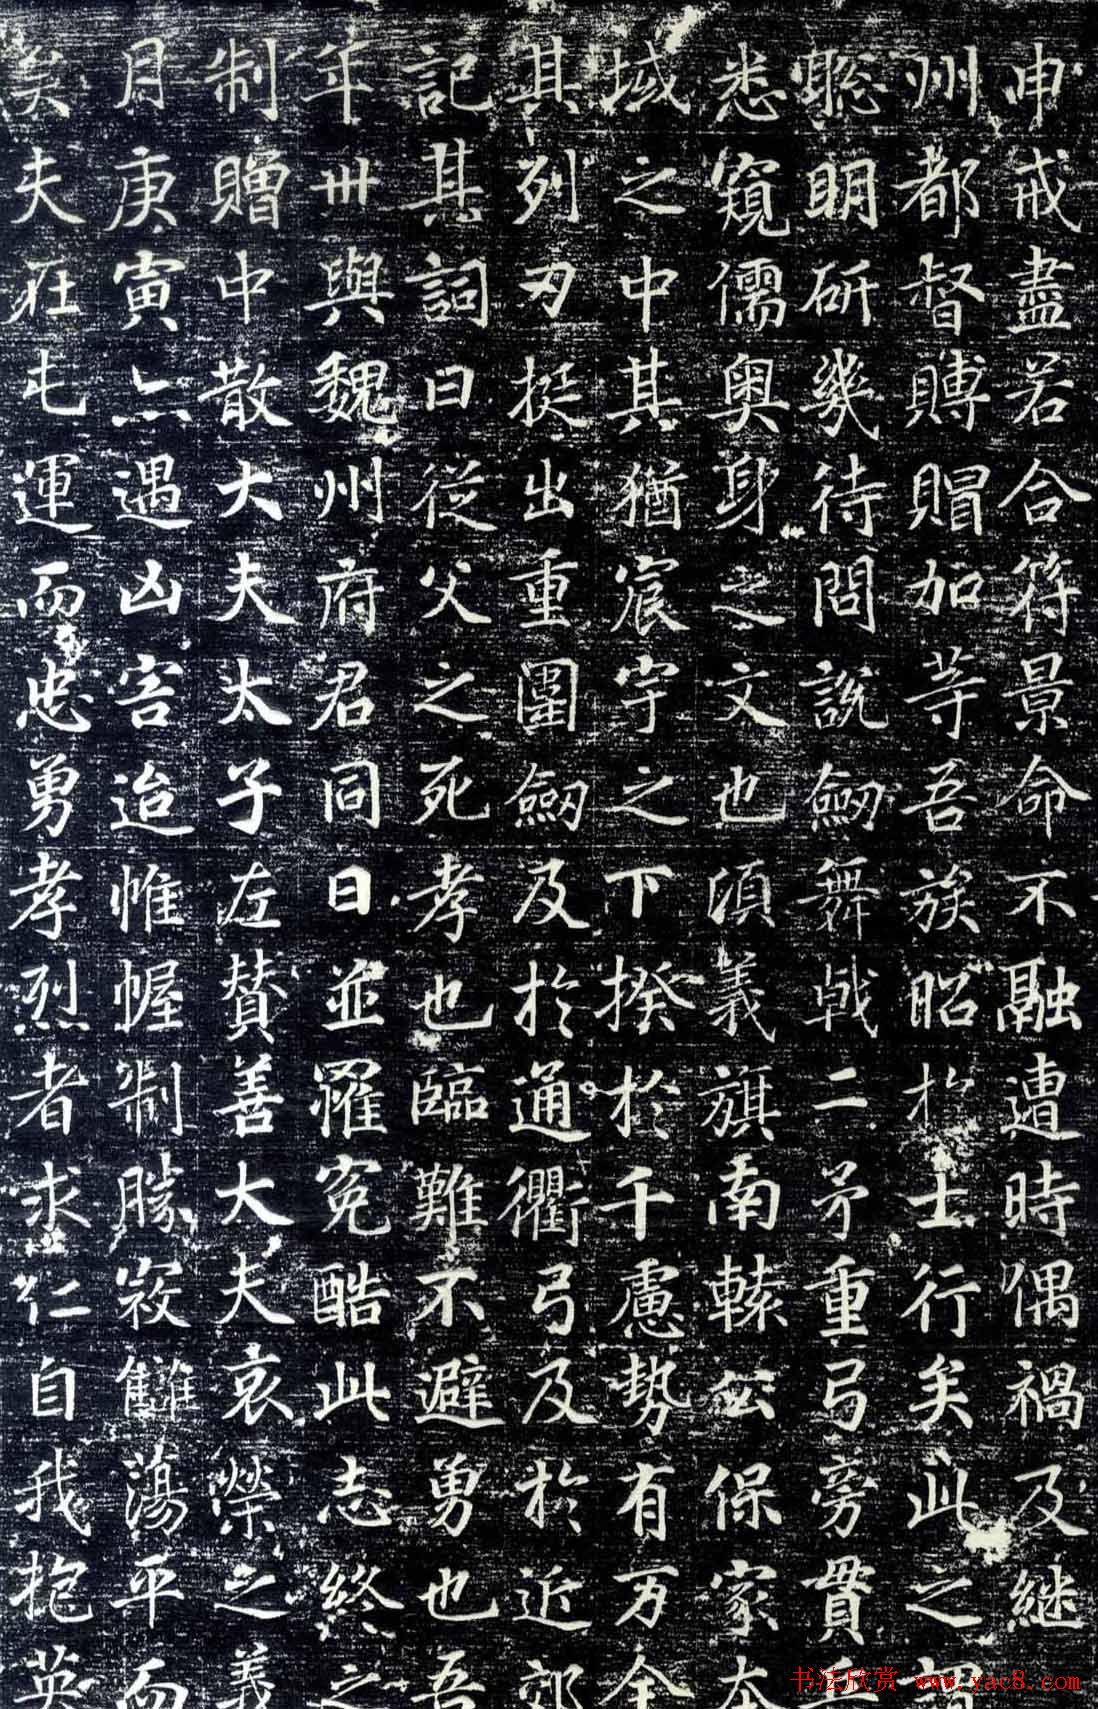 申戒盡若合符景命不融遭時偶禍及継
州都督賻賵加等吾族昭扵士行矣此之
聡明研幾待問說劔舞戟二矛重弓旁貫
悉窺儒奥身之文也湏義旗南轅公保家本
域之中其猶宸宇之下揆扵千慮势有万全
其列刃挺出重圍劔及扵通衢弓及扵近郊
記其詞曰從父之死孝也臨難不避勇也吾
年卅與魏州府君同日並罹寃酷此志終之
制贈中散大夫太子左賛善大夫哀榮之義
月庚寅奄遇凶害迨帷幄制勝寇讎蕩平而
矣夫在屯運而忠勇孝烈者求仁自我抱英
书法欣赏 www.yac8.com